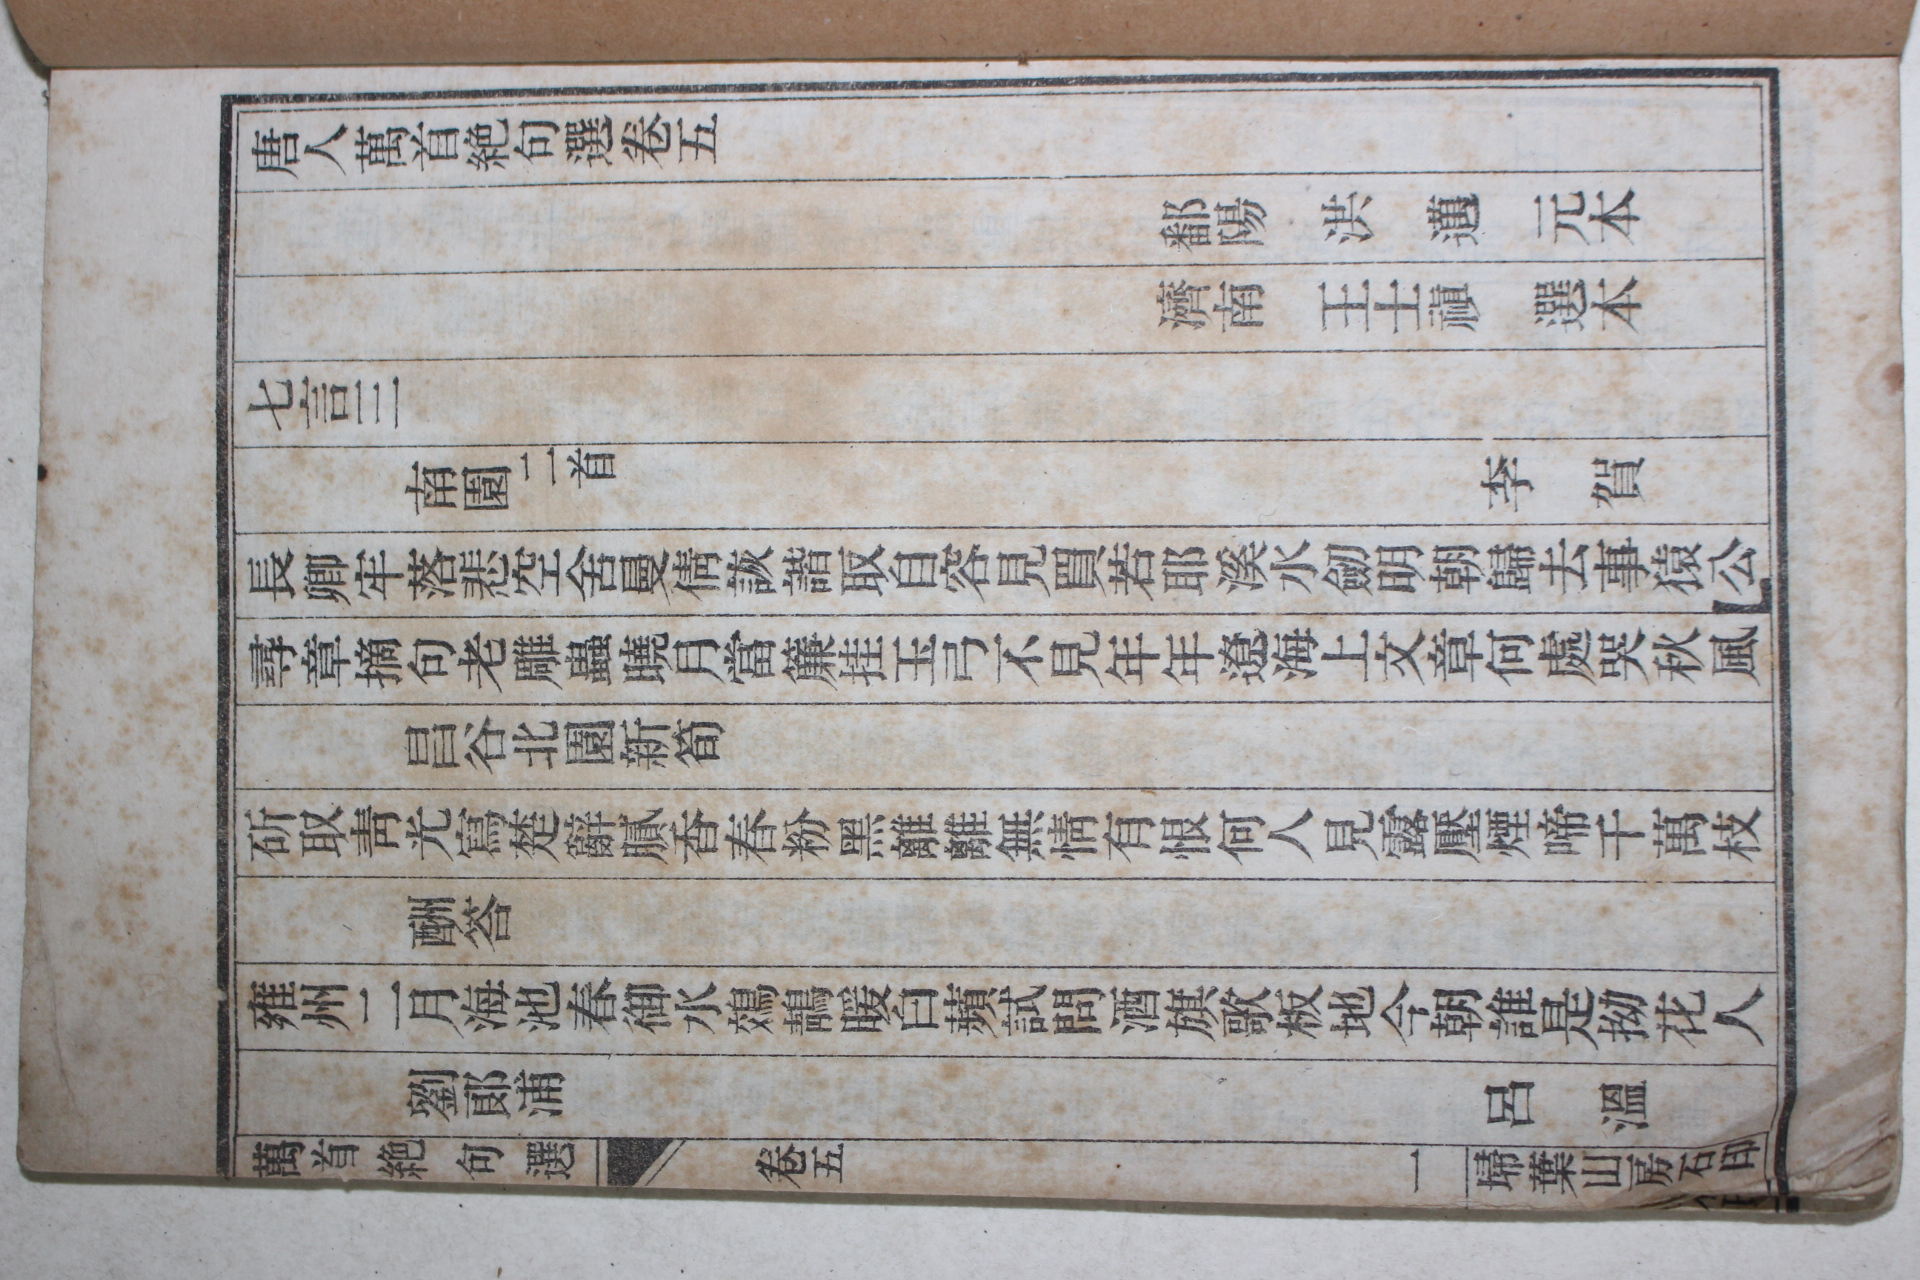 唐人萬首絶句選卷五
鄱陽 洪 邁 元本
濟南 王士禛 選本
七言三
南園二首 李 賀
長卿牢落悲空舍曼倩詼諧取自容見買若耶溪水劒明朝歸去事猿公
尋章摘句老雕蟲曉月當簾挂玉弓不見年年遼海上文章何處哭秋風
昌谷北園新筍
斫取靑光寫楚辭膩香春粉黑離離無情有恨何人見露壓煙啼千萬枝
酬答
雍州二月海池春御水鵁鶄暖白蘋試問酒旗歌板地今朝誰是拗花人
劉郎浦 呂 溫
萬首絶句選 卷五 一 埽葉山房石印